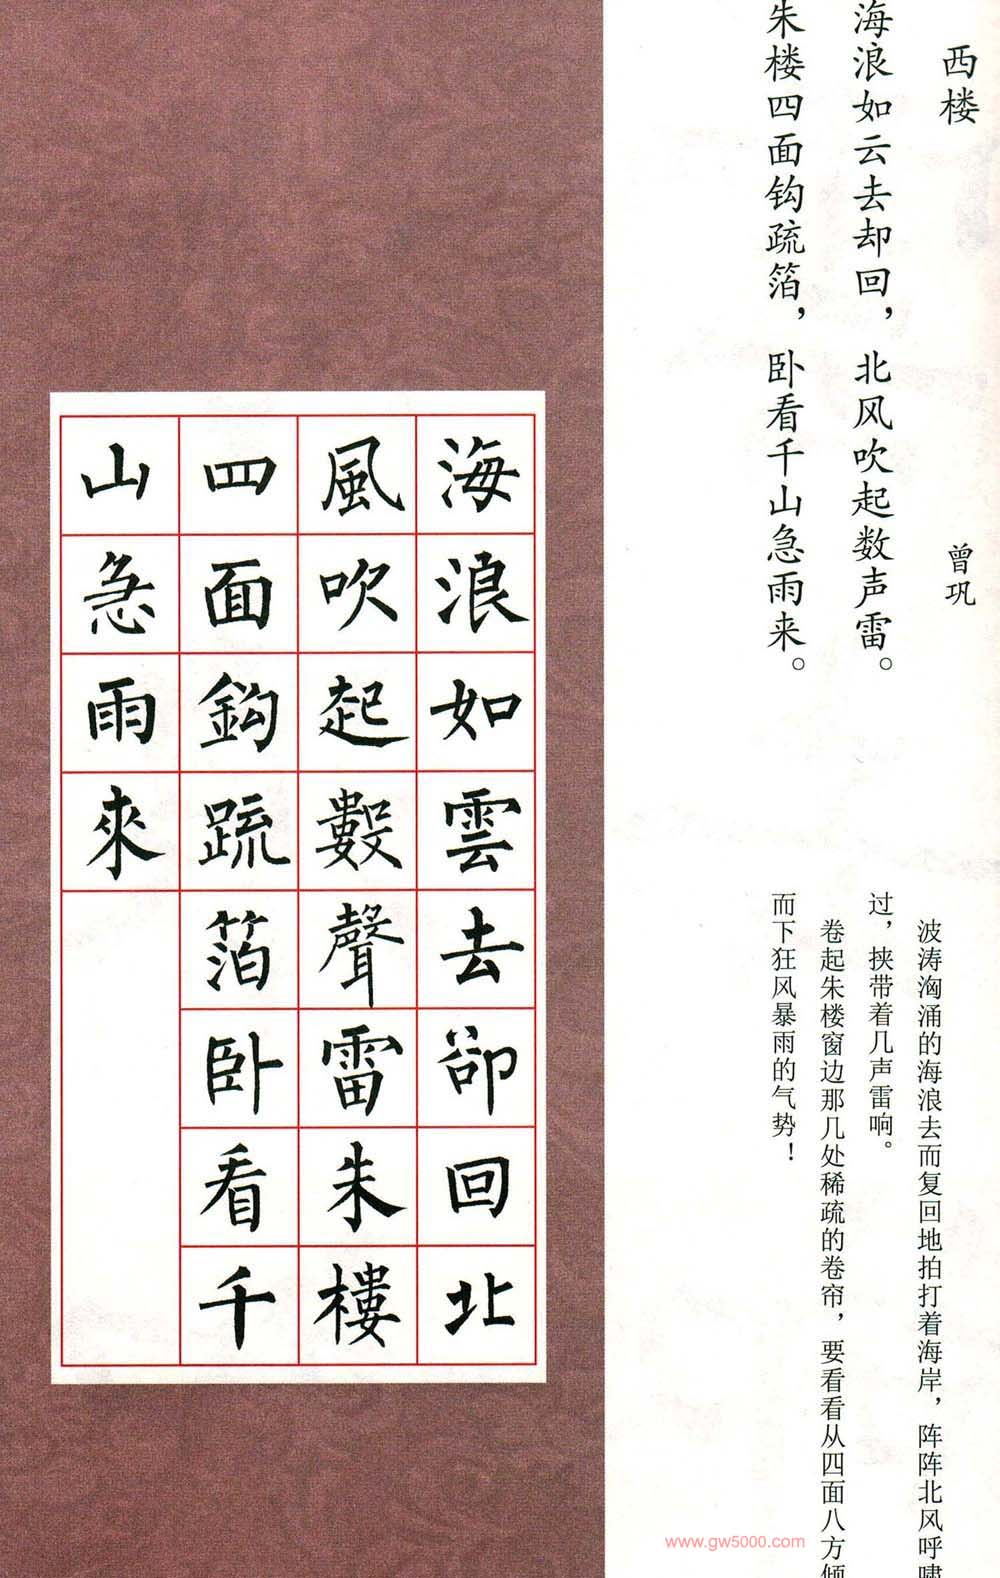 西楼
曾巩
海浪如云去却回，北风吹起数声雷。
朱楼四面钩疏箔，卧看千山急雨来。
波涛汹涌的海浪去而复回地拍打着海岸，阵阵北风呼啸
过，挟带着几声雷响。
卷起朱楼窗边那几处稀疏的卷帘，要看看从四面八方倾
而下狂风暴雨的气势！
海浪如雲去卻回北
風吹起數聲雷朱樓
四面鈎疏箔卧看千
山急雨來
www.gw5000.com